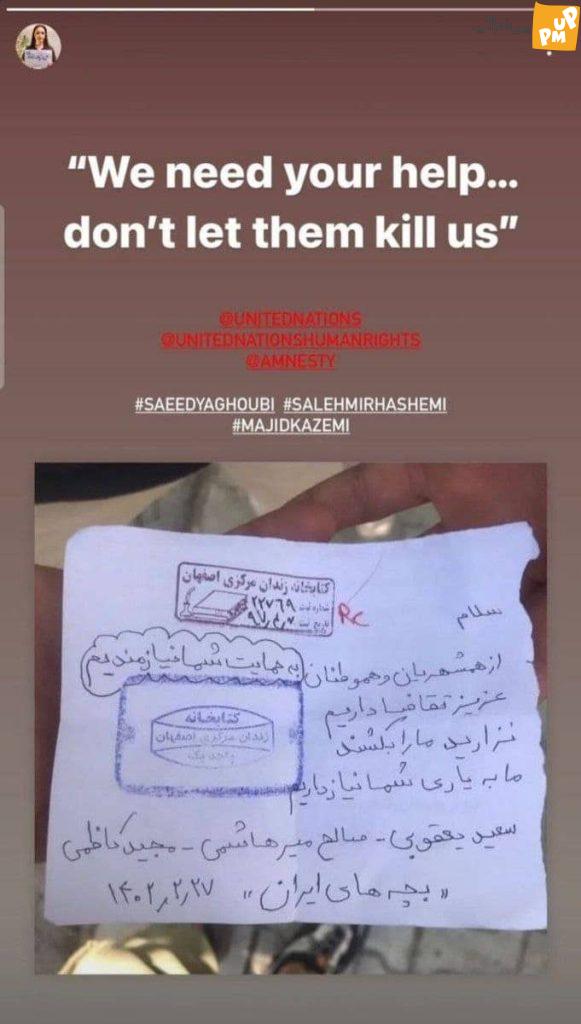 PM UP
“We need your help...
don’t let them kill us”
@UNITEDNATIONS
@UNITEDNATIONSHUMANRIGHTS
@AMNESTY
#SAEEDYAGHOUBI #SALEHMIRHASHEMI
#MAJIDKAZEMI
کتابخانه زندان مرکزی اصفهان
شماره ثبت ۲۲۷۶۹
تاریخ ثبت ۹۷/۰۲/۰۷
RC
سلام
از همشهریان و هموطنان به حمایت شما نیازمندیم
عزیز تقاضا داریم
نزارید ما را بکشند
ما به یاری شما نیاز داریم
کتابخانه
زندان مرکزی اصفهان
واحد یک
سعید یعقوبی - صالح میرهاشمی - مجید کاظمی
«بچه های ایران» ۱۴۰۲٫۲٫۲۷